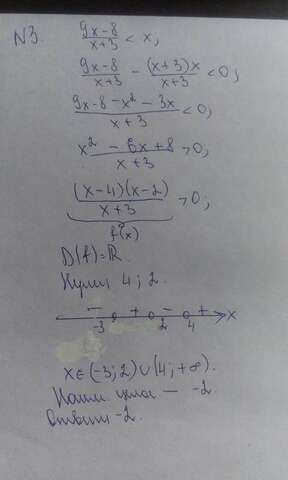 N3. (9x-8)/(x+3) < x;
(9x-8)/(x+3) - ((x+3)x)/(x+3) < 0;
(9x-8-x²-3x)/(x+3) < 0;
(x²-6x+8)/(x+3) > 0;
((x-4)(x-2))/(x+3) > 0;
f(x)
D(f)=ℝ.
Нули: 4; 2.
− + − +
-3 2 4 x
x∈(-3; 2)∪(4; +∞).
Наим. целое — -2.
Ответ: -2.